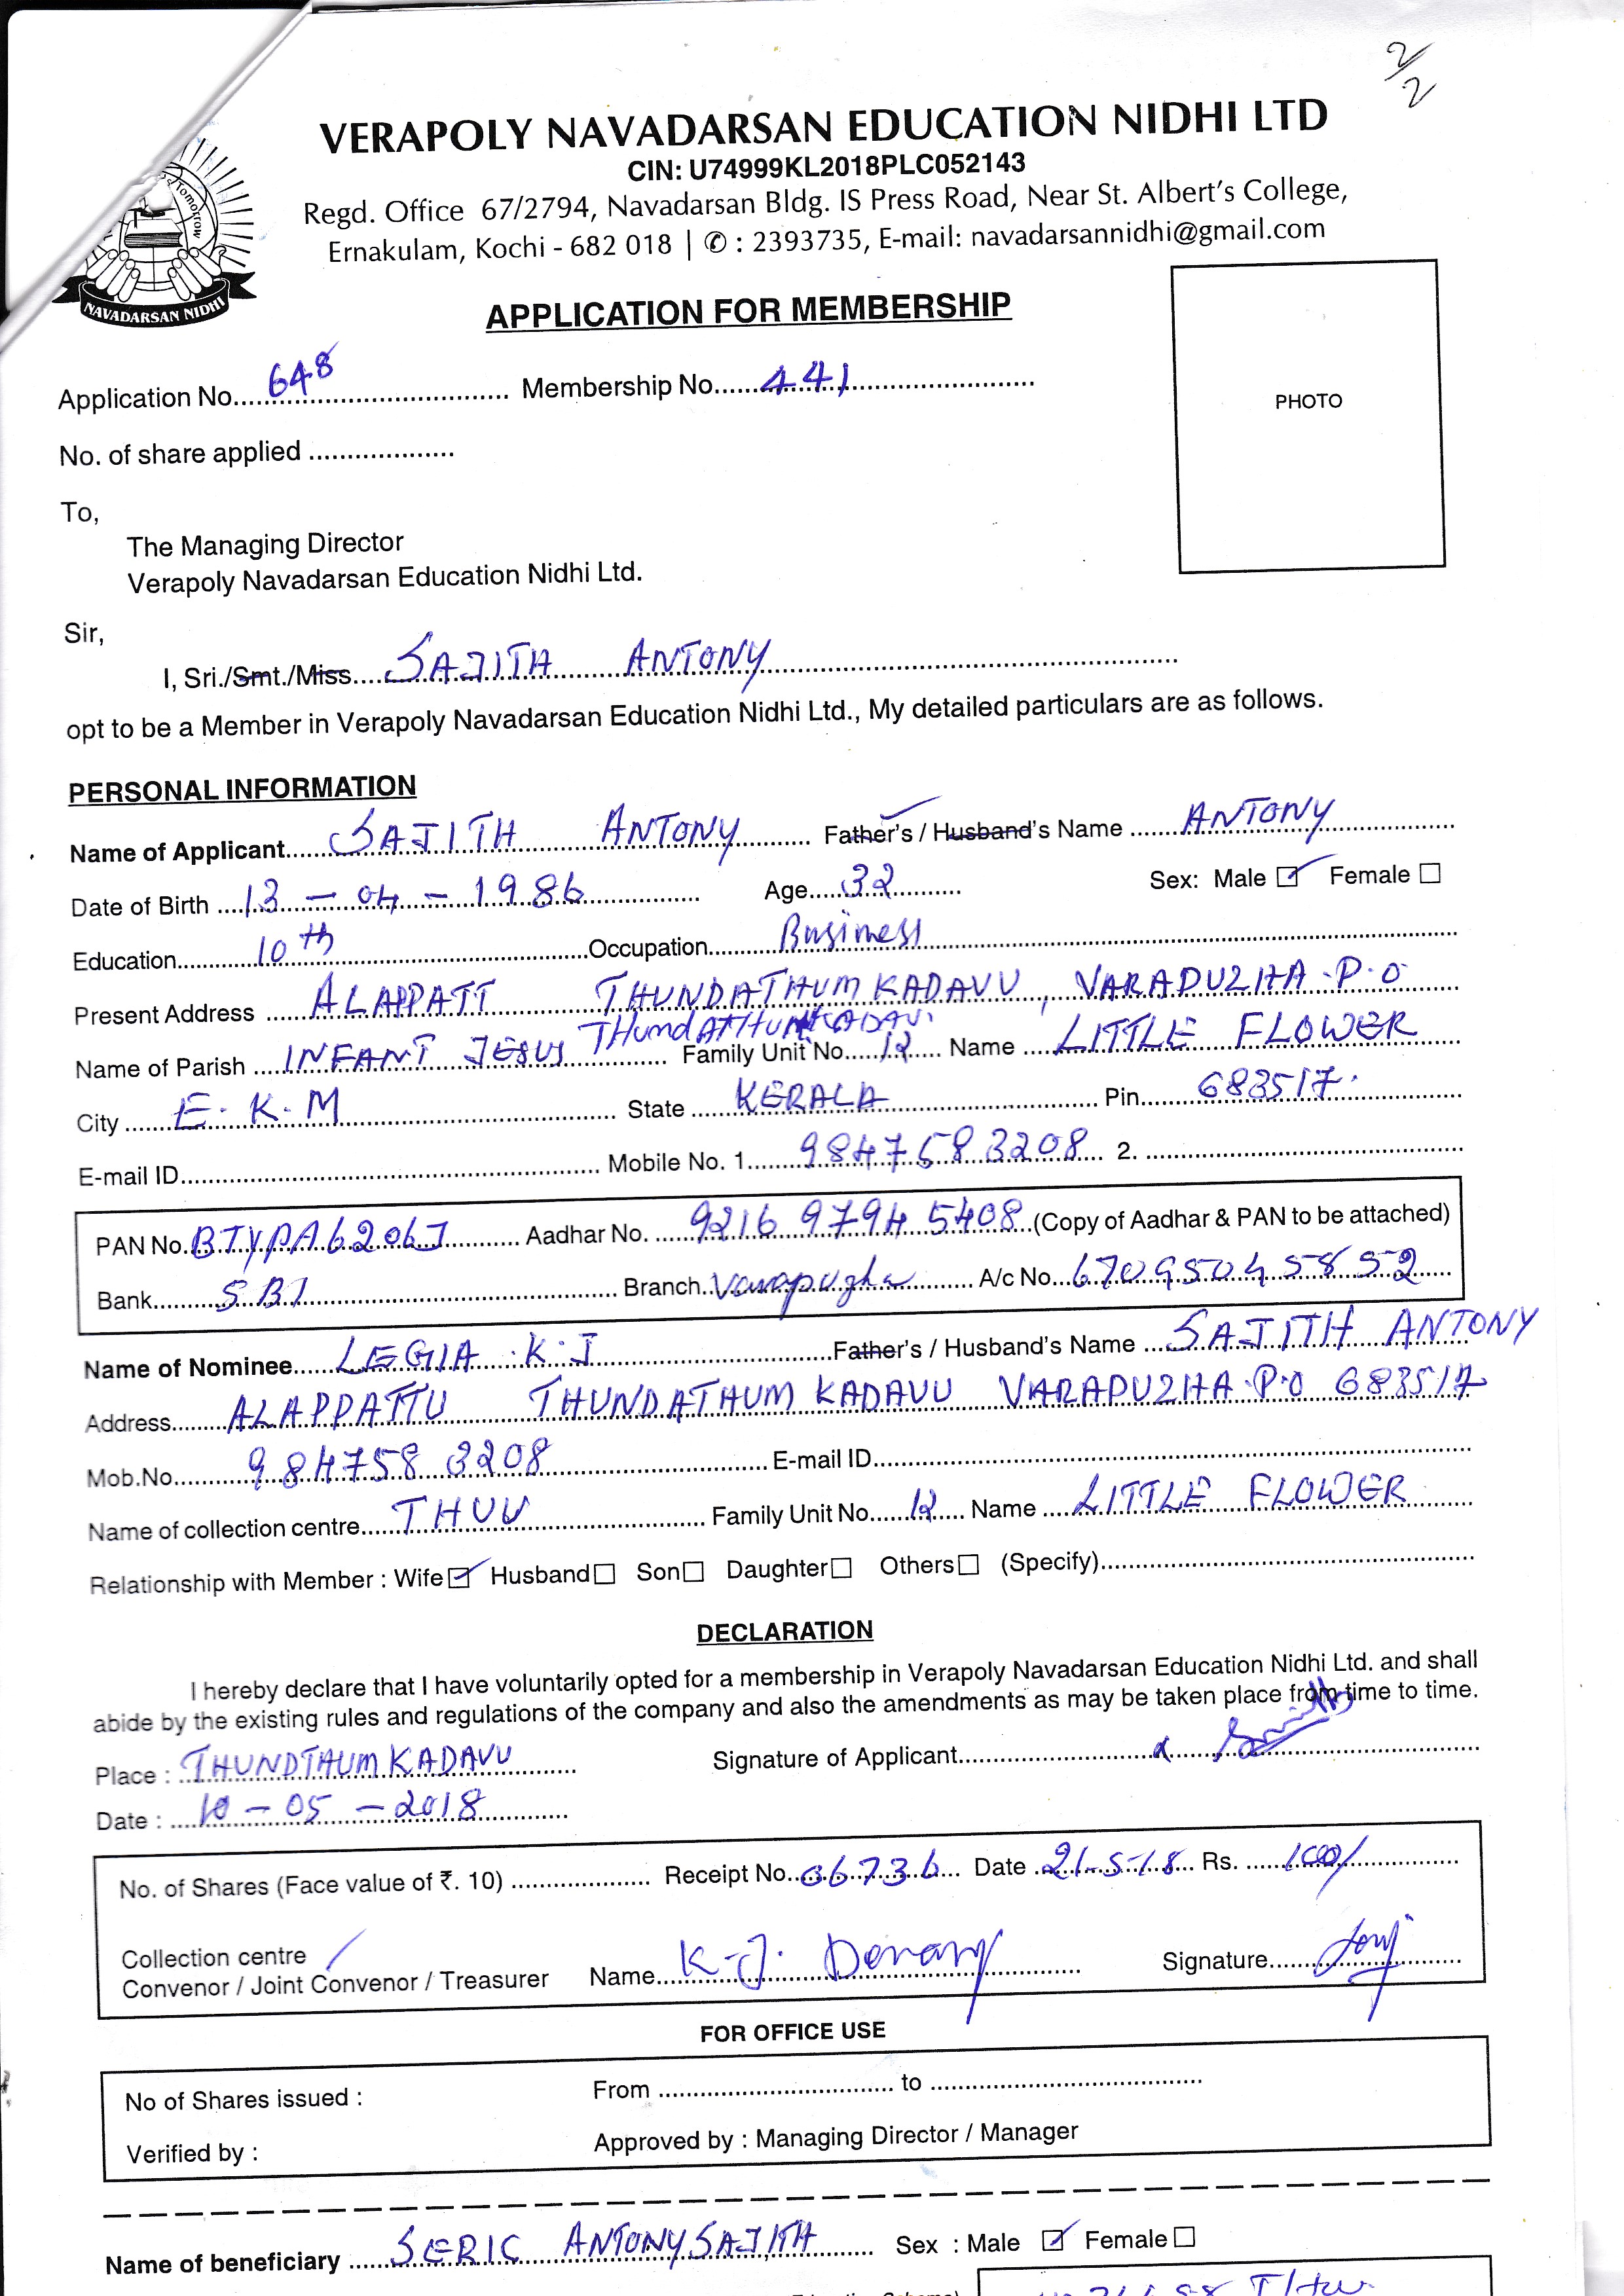 2/2
VERAPOLY NAVADARSAN EDUCATION NIDHI LTD
CIN: U74999KL2018PLC052143
Regd. Office 67/2794, Navadarsan Bldg. IS Press Road, Near St. Albert's College,
Ernakulam, Kochi - 682 018 | ✆ : 2393735, E-mail: navadarsannidhi@gmail.com
Tomorrow
NAVADARSAN NIDHI
APPLICATION FOR MEMBERSHIP
PHOTO
Application No. 648 Membership No. 441
No. of share applied
To,
The Managing Director
Verapoly Navadarsan Education Nidhi Ltd.
Sir,
I, Sri./Smt./Miss SAJITH ANTONY
opt to be a Member in Verapoly Navadarsan Education Nidhi Ltd., My detailed particulars are as follows.
PERSONAL INFORMATION
Name of Applicant SAJITH ANTONY Father's / Husband's Name ANTONY
Date of Birth 13 - 04 - 1986 Age 32 Sex: Male ☑ Female ☐
Education 10th Occupation Business
Present Address ALAPPATT THUNDATHUM KADAVU, VARAPUZHA.P.O
Name of Parish INFANT JESUS THUNDATHUMKADAVU Family Unit No. 12 Name LITTLE FLOWER
City E.K.M State KERALA Pin 683517
E-mail ID Mobile No. 1. 9847583208 2.
PAN No. BTYPA6206J Aadhar No. 9216 9794 5408 (Copy of Aadhar & PAN to be attached)
Bank SBI Branch Varapuzha A/c No. 67095045852
Name of Nominee LEGIA .K.J Father's / Husband's Name SAJITH ANTONY
Address ALAPPATTU THUNDATHUM KADAVU VARAPUZHA.P.O 683517
Mob.No. 984758 3208 E-mail ID
Name of collection centre THUV Family Unit No. 12 Name LITTLE FLOWER
Relationship with Member : Wife ☑ Husband ☐ Son ☐ Daughter ☐ Others ☐ (Specify)
DECLARATION
I hereby declare that I have voluntarily opted for a membership in Verapoly Navadarsan Education Nidhi Ltd. and shall
abide by the existing rules and regulations of the company and also the amendments as may be taken place from time to time.
Place : THUNDTHUM KADAVU Signature of Applicant
Date : 10 - 05 - 2018
No. of Shares (Face value of ₹. 10) Receipt No. 06736 Date 21-5-18 Rs. 1000/
Collection centre
Convenor / Joint Convenor / Treasurer Name K.J. Signature
FOR OFFICE USE
No of Shares issued : From to
Verified by : Approved by : Managing Director / Manager
Name of beneficiary SERIC ANTONY SAJITH Sex : Male ☑ Female ☐